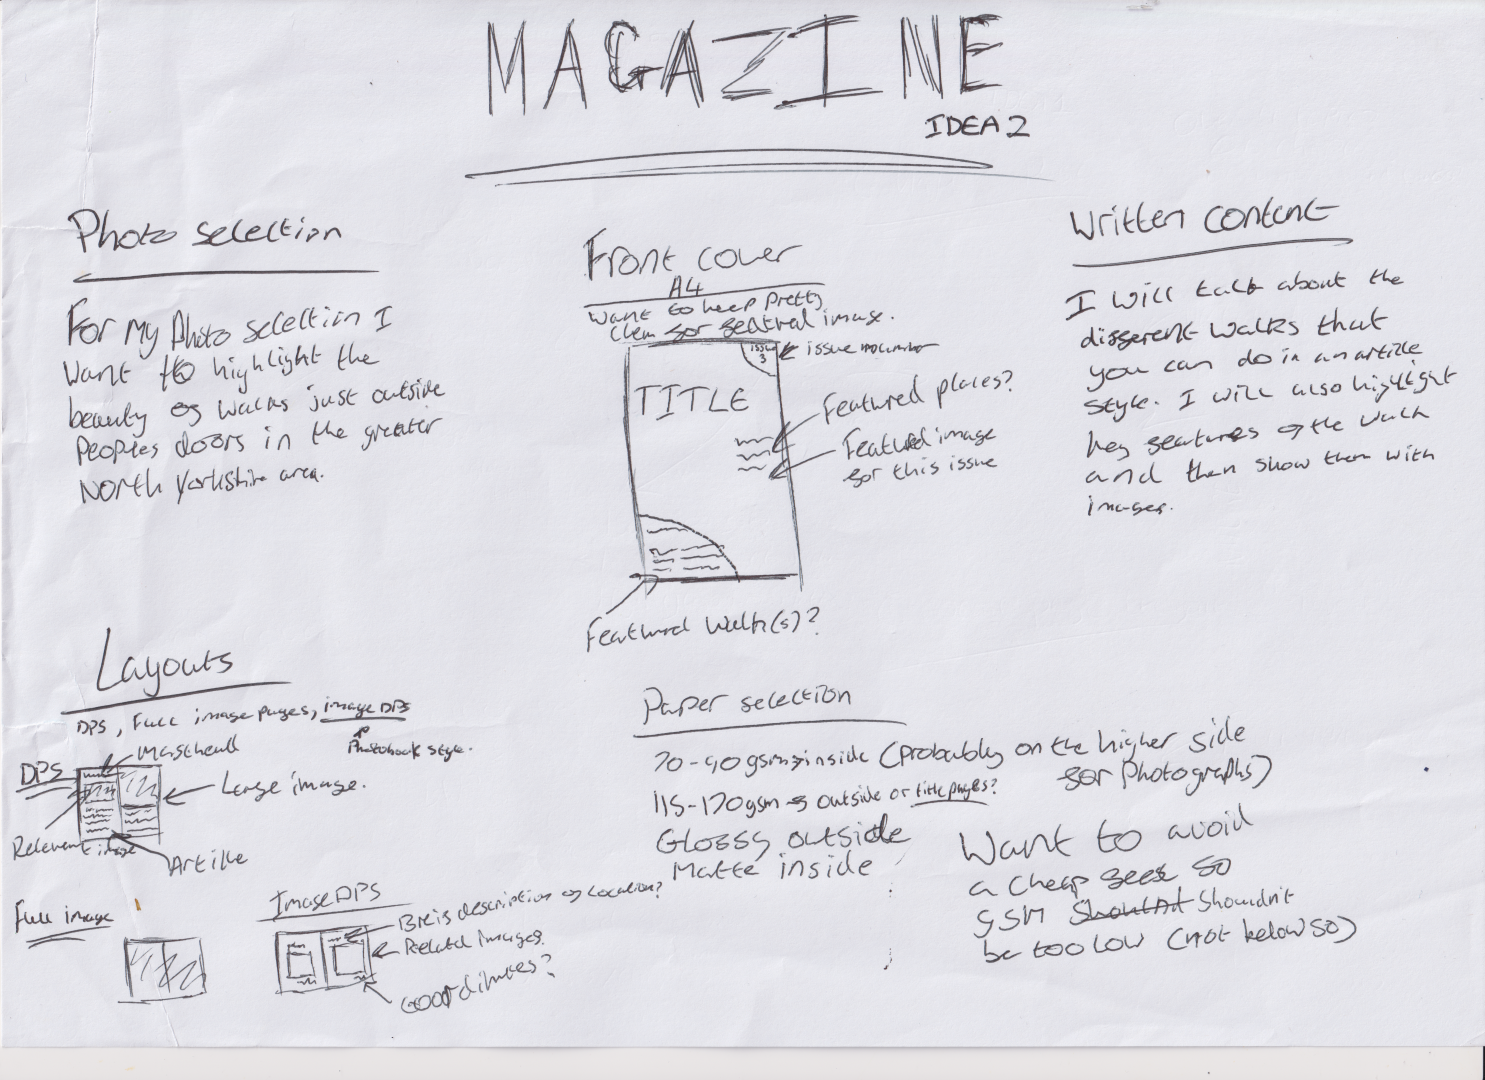 MAGAZINE
IDEA 2
Photo selection
For my Photo selection I
want to highlight the
beauty of walks just outside
Peoples doors in the greater
North Yorkshire area.
Front cover
A4
want to keep pretty
clean for central image.
issue
3
issue number
TITLE
Featured places?
Featured image
for this issue
Featured walk(s)?
Written content
I will talk about the
different walks that
you can do in an article
style. I will also highlight
key features of the walk
and then show them with
images.
Layouts
DPS, Full image pages, image DPS
Photobook style.
Masthead
DPS
Large image.
Relevant image
Article
Full image
Image DPS
Brief description of location?
Related images
Coordinates?
Paper selection
70-90gsm → inside (probably on the higher side
for photographs)
115-170gsm → outside or title pages?
Glossy outside
Matte inside
Want to avoid
a cheap feel so
GSM shouldn't
be too low (not below 80)